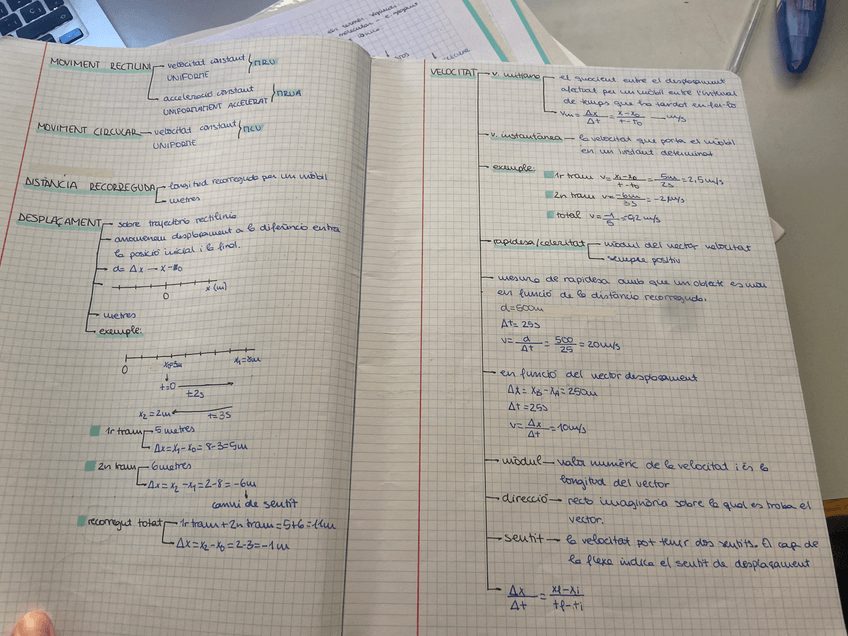 MOVIMENT RECTILINI
velocitat constant
UNIFORME
MRU
acceleració constant
UNIFORMEMENT ACCELERAT
MRUA
MOVIMENT CIRCULAR
velocitat constant
UNIFORME
MCU
DISTÀNCIA RECORREGUDA
longitud recorreguda per un mòbil
metres
DESPLAÇAMENT
sobre trajectòria rectilínia
anomenem desplaçament a la diferència entre
la posició inicial i la final.
d = Δx → x - x₀
0 x (m)
metres
exemple:
0 x₀=3m x₁=8m
t=0
t=2s
x₂=2m t=3s
1r tram 5 metres
Δx = x₁ - x₀ = 8-3 = 5m
2n tram 6 metres
Δx = x₂ - x₁ = 2-8 = -6m
canvi de sentit
recorregut total 1r tram + 2n tram = 5+6 = 11m
Δx = x₂ - x₀ = 2-3 = -1m
VELOCITAT
v. mitjana el quocient entre el desplaçament
efectuat per un mòbil entre l'interval
de temps que ha tardat en fer-lo
vm = Δx/Δt = x-x₀/t-t₀ m/s
v. instantània la velocitat que porta el mòbil
en un instant determinat
exemple:
1r tram v = x₁-x₀/t-t₀ = 5m/2s = 2,5 m/s
2n tram v = -6m/3s = -2m/s
total v = -1/5 = 0,2 m/s
rapidesa/celeritat mòdul del vector velocitat
sempre positiu
mesura de rapidesa amb que un objecte es mou
en funció de la distància recorreguda.
d = 500m
Δt = 25s
v = d/Δt = 500/25 = 20m/s
en funció del vector desplaçament
Δx = xB - xA = 250m
Δt = 25s
v = Δx/Δt = 10m/s
mòdul valor numèric de la velocitat i és la
longitud del vector
direcció recta imaginària sobre la qual es troba el
vector.
sentit la velocitat pot tenir dos sentits. El cap de
la flexa indica el sentit de desplaçament
Δx/Δt = xf-xi/tf-ti